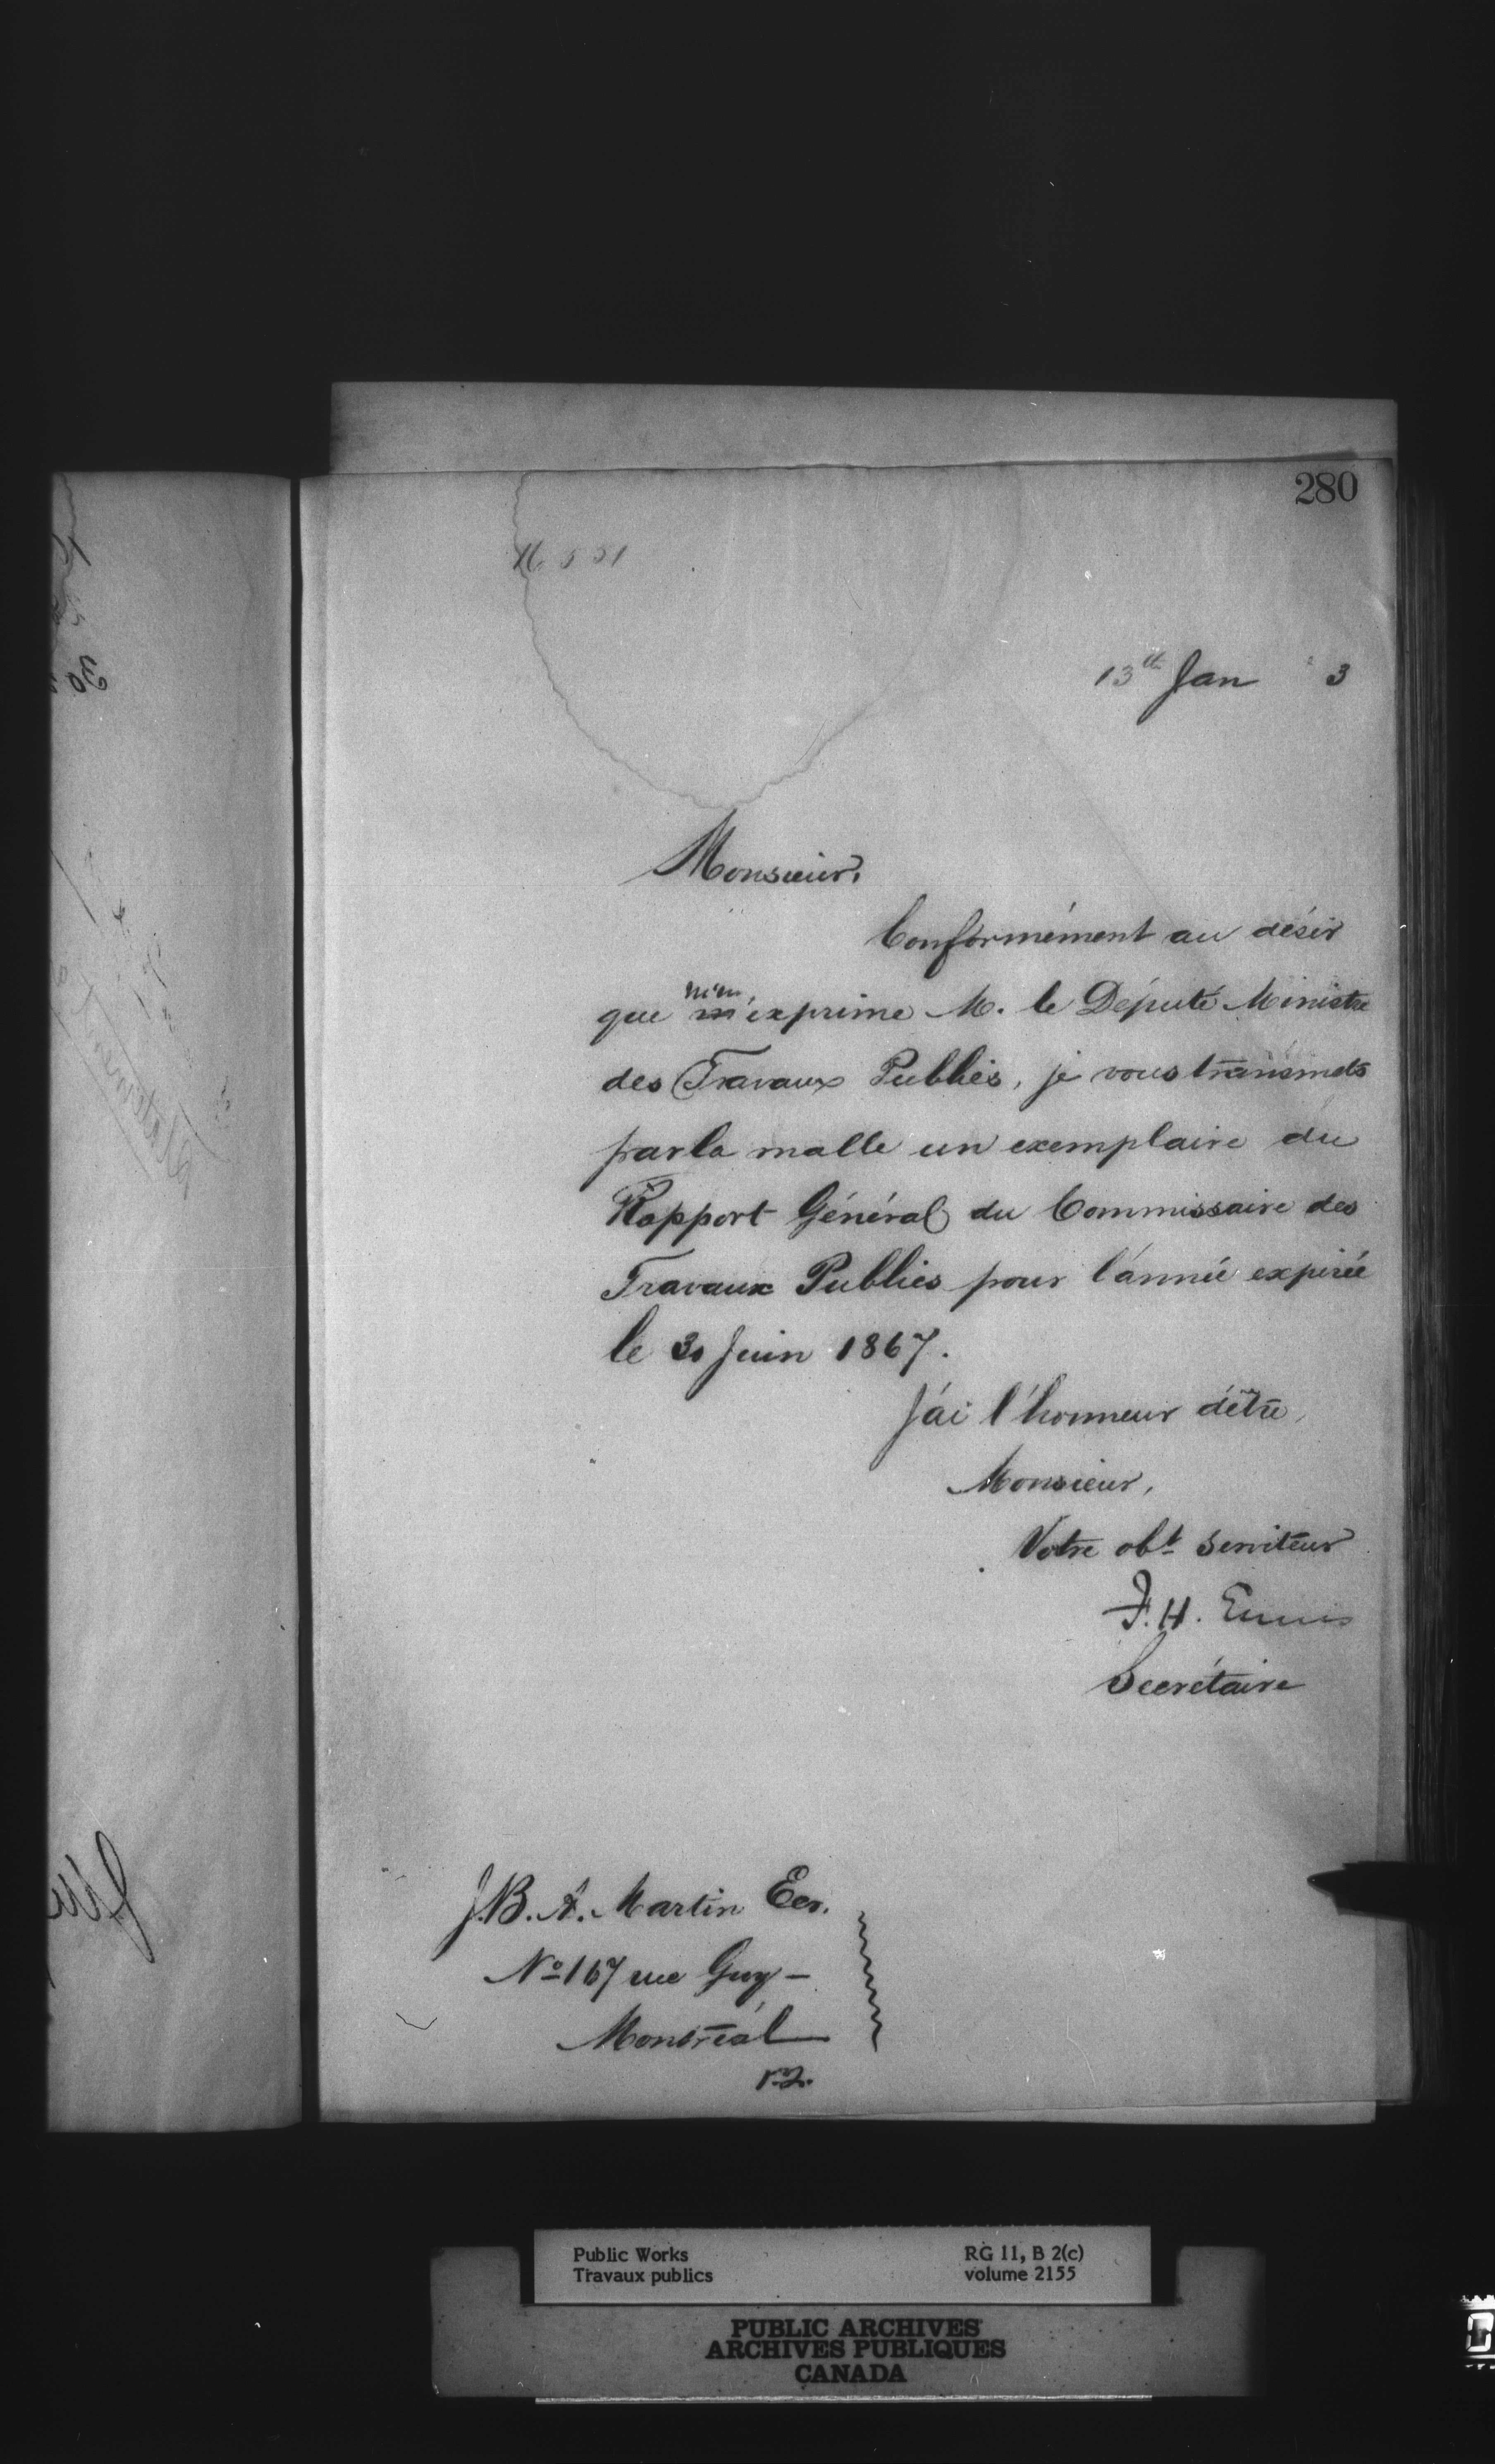 280
16 551
13th Jan 3
Monsieur,
Conformément au désir
que m'en exprime M. le Député Ministre
des Travaux Publics, je vous transmets
par la malle un exemplaire du
Rapport Général du Commissaire des
Travaux Publics pour l'année expirée
le 30 Juin 1867.
J'ai l'honneur d'être,
Monsieur,
Votre obt serviteur
F. H. Ennis
Secrétaire
J. B. A. Martin Ecr.
No 167 rue Guy –
Montréal
Public Works
Travaux publics
RG 11, B 2(c)
volume 2155
PUBLIC ARCHIVES
ARCHIVES PUBLIQUES
CANADA